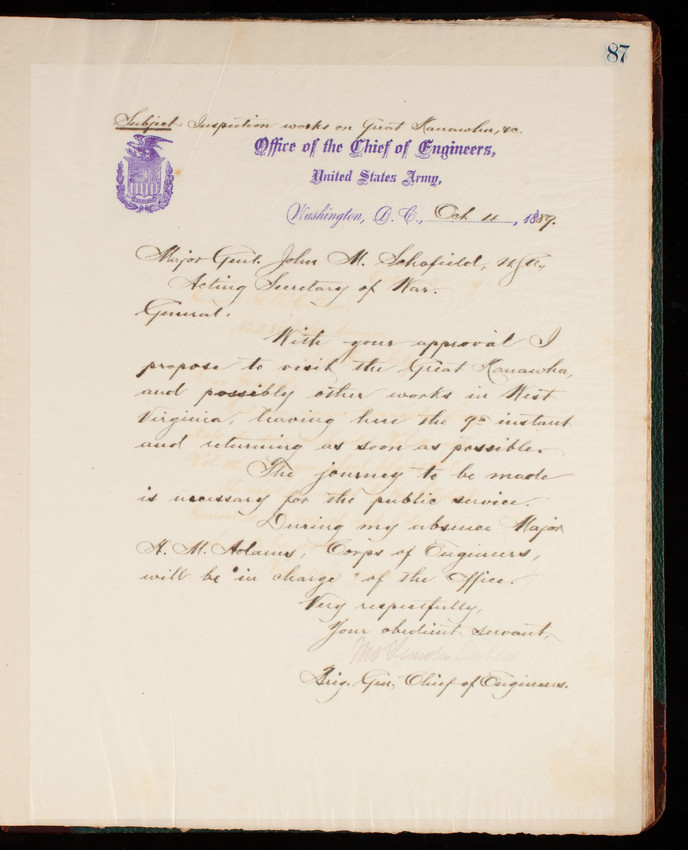 87
Subject: Inspection works on Great Kanawha, &c.
Office of the Chief of Engineers,
United States Army,
Washington, D. C., Oct. 4, 1889.
Major Genl. John M. Schofield, U.S.A.
Acting Secretary of War.
General:
With your approval I
propose to visit the Great Kanawha,
and possibly other works in West
Virginia, leaving here the 9th instant
and returning as soon as possible.
The journey to be made
is necessary for the public service.
During my absence Major
H. M. Adams, Corps of Engineers,
will be "in charge" of the Office.
Very respectfully,
Your obedient servant,
Thos Lincoln Casey
Brig. Gen, Chief of Engineers.